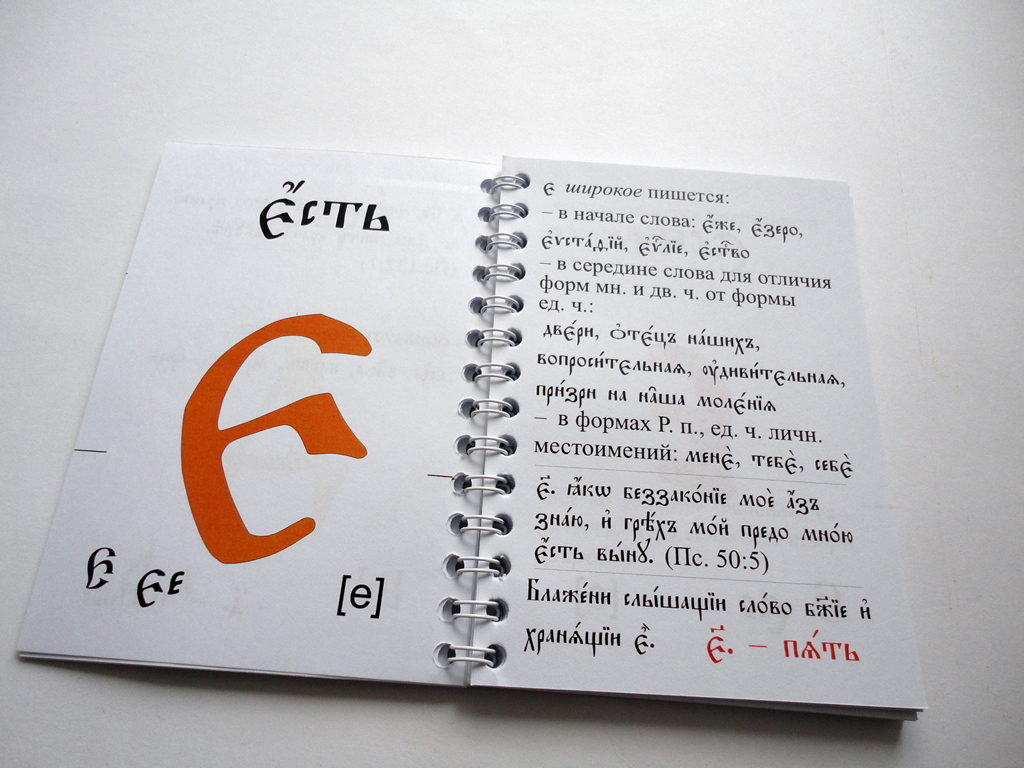 Є҆́сть
Є
Є Є е
[е]
є широкое пишется:
– в начале слова: є҆́же, є҆́зеро,
є҆ѵста́дїй, є҆ѵⷢ҇лїе, є҆стⷭ҇во
– в середине слова для отличия
форм мн. и дв. ч. от формы
ед. ч.:
двє́ри, ѻ҆тє́цъ на́шихъ,
вопроси́тєльнаѧ, ᲂу҆диви́тєльнаѧ,
при́зри на на̑ша молє́нїѧ
– в формах Р. п., ед. ч. личн.
местоимений: менє̀, тебє̀, себє̀
є҃. ꙗ҆́кѡ беззако́нїе моѐ а҆́зъ
зна́ю, и҆ грѣ́хъ мо́й предо мно́ю
є҆́сть вы́нꙋ. (Пс. 50:5)
Блаже́ни слы́шащїи сло́во бж҃їе и҆
храня́щїи є҆̀.
є҃. – пѧ́ть